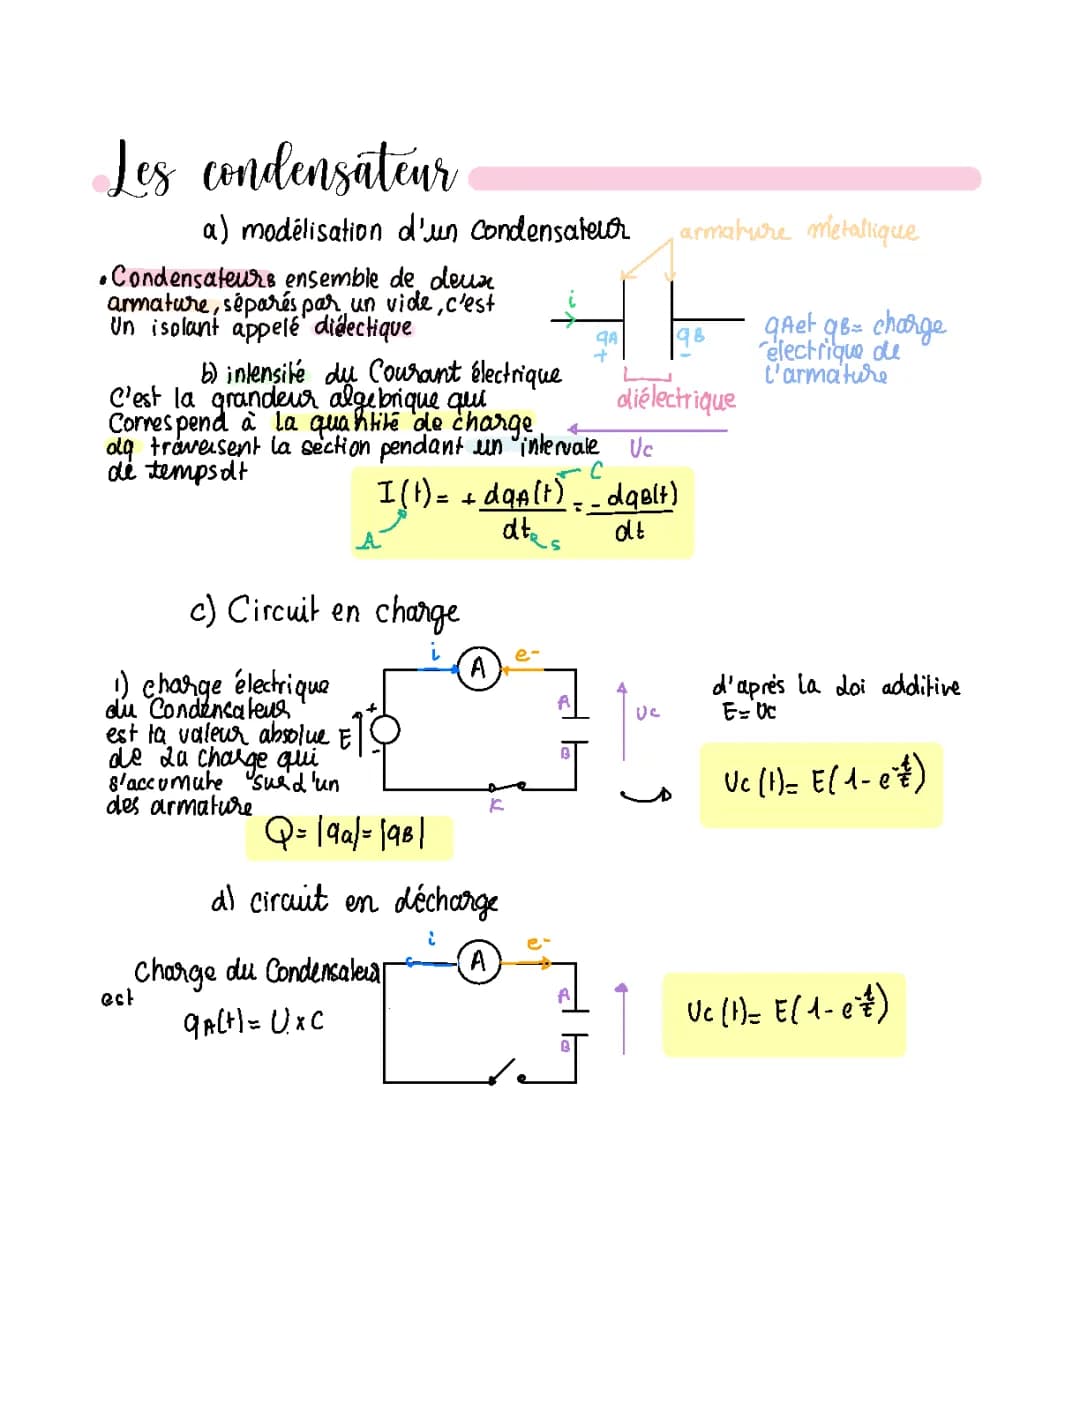 Les condensateur
a) modélisation d'un Condensateur
armature métallique
• Condensateurs ensemble de deux
armature, séparés par un vide, c'est
Un isolant appelé diélectique
i
qA
+
qB
-
qA et qB = charge
électrique de
l'armature
diélectrique
Uc
b) intensité du Courant électrique
C'est la grandeur algebrique qui
Correspend à la quantité de charge
dq traversent la section pendant un intervale
de temps dt
I(t) = + dqA(t)/dt = - dqB(t)/dt
C
A
s
c) Circuit en charge
1) charge électrique
du Condensateur
est la valeur absolue
de la charge qui
s'accumule sur d'un
des armature
Q = |qa| = |qB|
i
A
e-
E
+
-
A
B
Uc
K
d'après la loi additive
E = Uc
Uc (t) = E(1 - e^-t/τ)
d) circuit en décharge
Charge du Condensateur
est
qA(t) = U x C
i
A
e-
A
B
Uc (t) = E(1 - e^-t/τ)